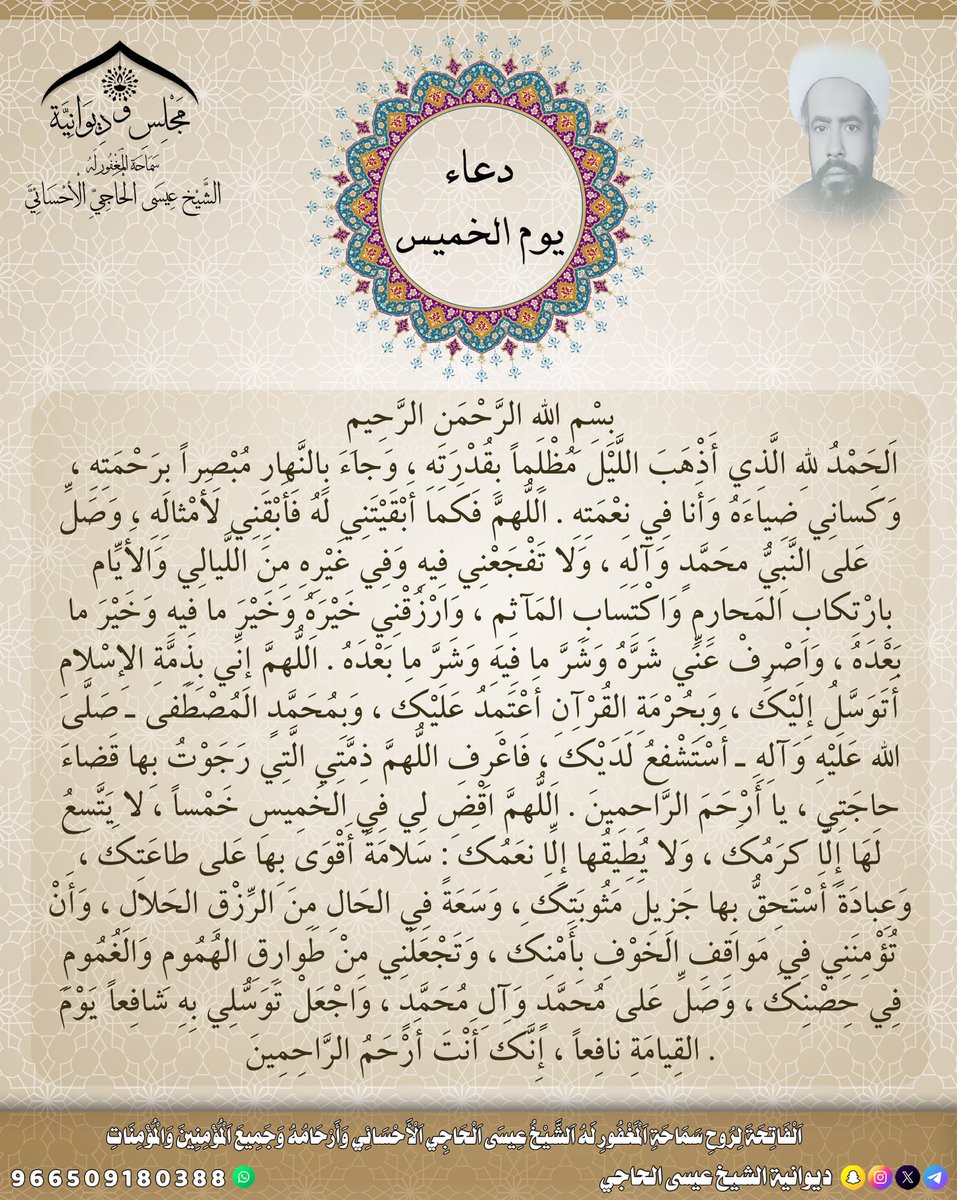 مَجْلِس و دِيوَانِيَّة
سَمَاحَة المَغْفُور لَهُ
الشَّيْخ عِيسَى الْحَاجِيّ الْأَحْسَائِيّ
دعاء
يوم الخميس
بِسْمِ الله الرَّحْمَنِ الرَّحِيمِ
اَلحَمْدُ للهِ الَّذِي أَذْهَبَ اللَّيْلَ مُظْلِماً بِقُدْرَتِهِ ، وَجاءَ بِالنَّهارِ مُبْصِراً بِرَحْمَتِهِ ،
وَكَسانِي ضِياءَهُ وَأنا فِي نِعْمَتِهِ . اَللَّهمَّ فَكَما أبْقَيْتَنِي لَهُ فَأبْقِنِي لأمْثالِهِ ، وَصَلِّ
عَلى النَّبِيُّ محَمَّدٍ وَآلِهِ ، وَلا تَفْجَعْنِي فِيهِ وَفِي غَيْرِهِ مِنَ اللَّيالِي وَالأيّامِ
بارْتِكابِ المَحارِمِ وَاكْتِسابِ المَآثِمِ ، وَارْزُقْنِي خَيْرَهُ وَخَيْرَ ما فِيهِ وَخَيْرَ ما
بَعْدَهُ ، وَاصْرِفْ عَنِّي شَرَّهُ وَشَرَّ ما فِيهَ وَشَرَّ ما بَعْدَهُ . اَللَّهمَّ إنِّي بِذِمَّةِ الإسْلامِ
أتَوَسَّلُ إلَيْكَ ، وَبِحُرْمَةِ القُرْآنِ أعْتَمَدُ عَلَيْكَ ، وَبِمُحَمَّدٍ المُصْطَفى ـ صَلَّى
الله عَلَيْهِ وَآلِهِ ـ أسْتَشْفعُ لَدَيْكَ ، فَاعْرِفِ اللَّهمَّ ذِمَّتِي الَّتِي رَجَوْتُ بها قَضاءَ
حاجَتِي ، يا أَرْحَمَ الرَّاحمِينَ . اَللَّهمَّ اقْضِ لِي فِي الخَمِيسِ خَمْساً ، لا يَتَّسِعُ
لَهَا إلّا كَرَمُكَ ، وَلا يُطِيقُها إلّا نعَمُكَ : سَلامَةً أقْوَى بِهَا عَلى طاعَتِكَ ،
وَعِبادَةً أسْتَحِقُّ بها جَزِيلَ مَثُوبَتِكَ ، وَسَعَةً فِي الحَالِ مِنَ الرِّزْقِ الحَلالِ ، وَأنْ
تُؤْمِنَنِي فِي مَواقِفِ الخَوْفِ بِأمْنِكَ ، وَتَجْعَلَنِي مِنْ طَوارِقِ الهُمُومِ وَالغُمُومِ
فِي حِصْنِكَ ، وَصَلِّ عَلى مُحَمَّدٍ وَآلِ مُحَمَّدٍ ، وَاجْعَلْ تَوَسُّلِي بِهِ شَافِعاً يَوْمَ
القِيامَةِ نافِعاً ، إنَّكَ أنْتَ أرْحَمُ الرَّاحِمِينَ .
اَلْفَاتِحَةَ لِرُوحِ سَمَاحَةِ اَلْمَغْفُورِ لَهُ اَلشَّيْخُ عِيسَى اَلْحَاجِي اَلْأَحْسَائِي وَأَرْحَامُهُ وَجَمِيعَ اَلْمُؤْمِنِينَ وَالْمُؤْمِنَاتِ
ديوانية الشيخ عيسى الحاجي
966509180388